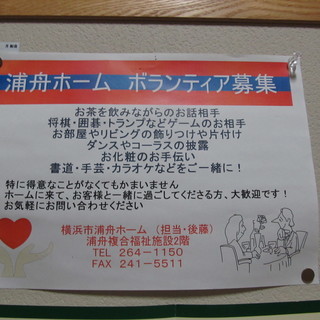 浦舟ホーム ボランティア募集
お茶を飲みながらのお話相手
将棋・囲碁・トランプなどゲームのお相手
お部屋やリビングの飾りつけや片付け
ダンスやコーラスの披露
お化粧のお手伝い
書道・手芸・カラオケなどをご一緒に！
特に得意なことがなくてもかまいません
ホームに来て、お客様と一緒に過ごしてくださる方、大歓迎です！
お気軽にお問い合わせください
横浜市浦舟ホーム （担当・後藤）
浦舟複合福祉施設2階
TEL 264－1150
FAX 241－5511